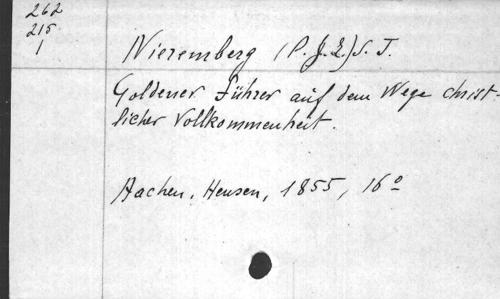 262
215
1
Nieremberg (P. J. E.) S. J.
Goldener Führer auf dem Wege christ-
licher Vollkommenheit.
Aachen, Hensen, 1855, 16º